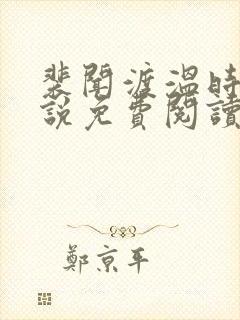 裴聞渡溫時
說免費閱讀
鄭京平